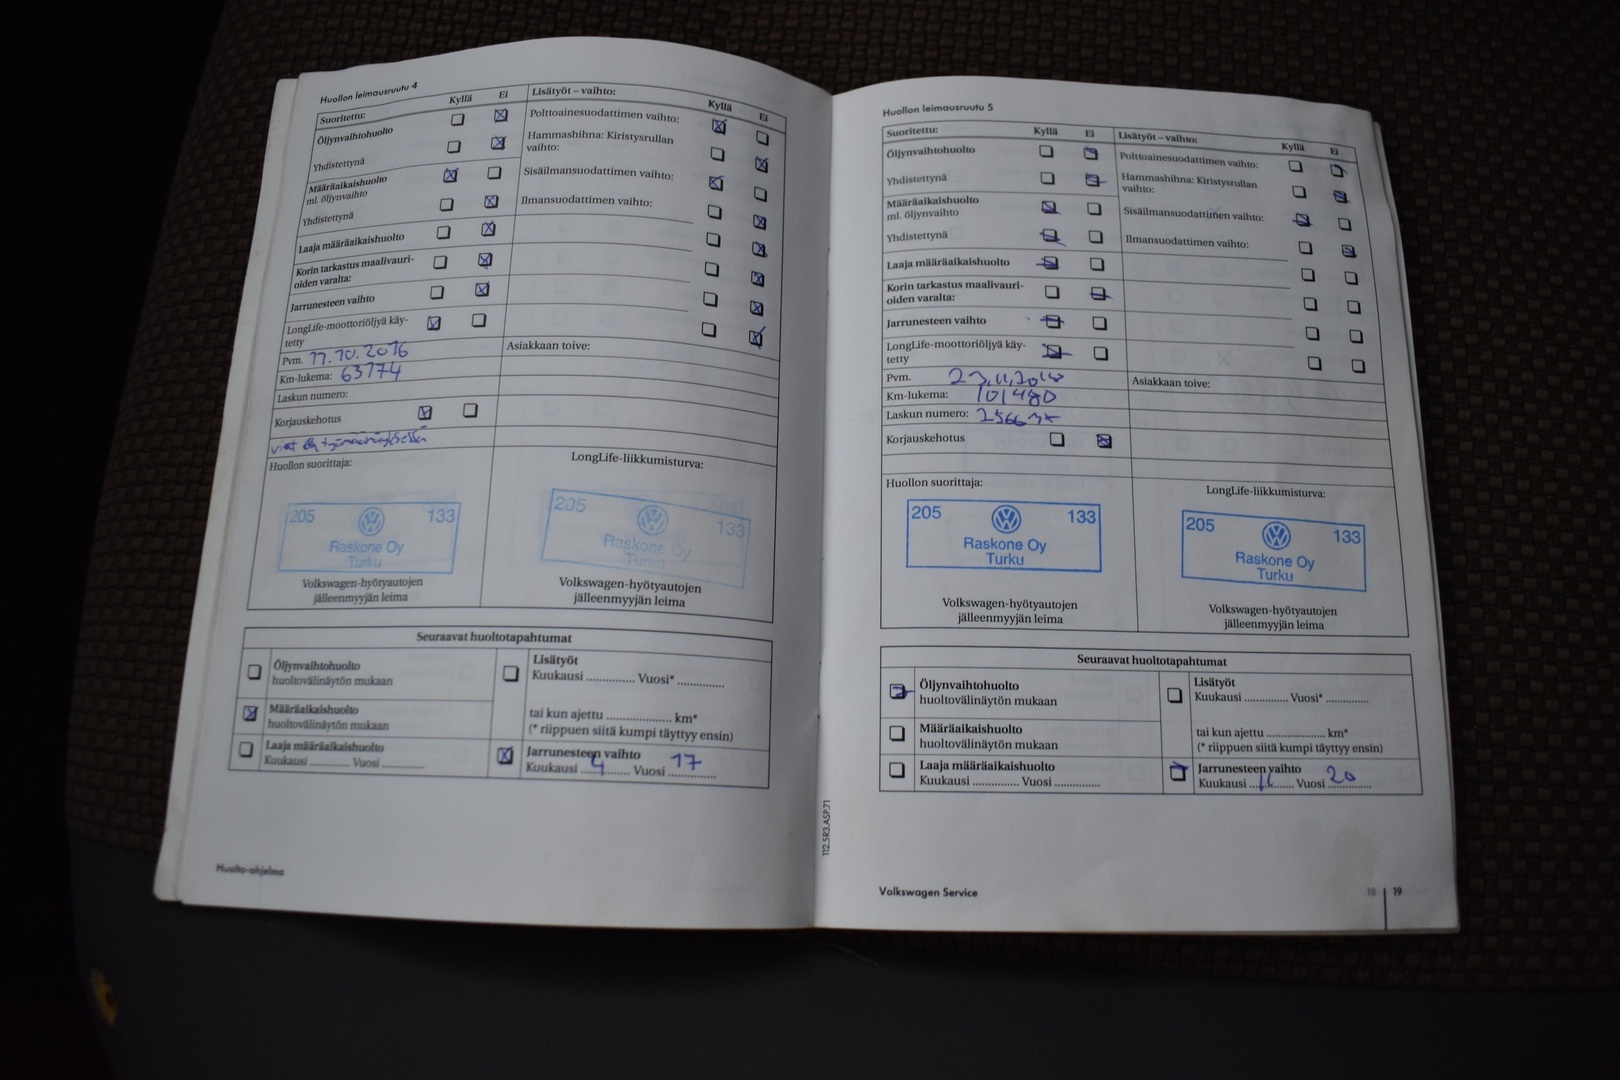 Huollon leimausruutu 4
Suoritettu: Kyllä Ei
Öljynvaihtohuolto
Yhdistettynä
Määräaikaishuolto
ml. öljynvaihto
Yhdistettynä
Laaja määräaikaishuolto
Korin tarkastus maalivauri-
oiden varalta:
Jarrunesteen vaihto
LongLife-moottoriöljyä käy-
tetty
Pvm. 11.10.2016
Km-lukema: 63774
Laskun numero:
Korjauskehotus
Huollon suorittaja:
205 133
Raskone Oy
Turku
Volkswagen-hyötyautojen
jälleenmyyjän leima
Lisätyöt – vaihto: Kyllä Ei
Polttoainesuodattimen vaihto:
Hammashihna: Kiristysrullan
vaihto:
Sisäilmansuodattimen vaihto:
Ilmansuodattimen vaihto:
Asiakkaan toive:
LongLife-liikkumisturva:
205 133
Raskone Oy
Turku
Volkswagen-hyötyautojen
jälleenmyyjän leima
Seuraavat huoltotapahtumat
Öljynvaihtohuolto
huoltovälinäytön mukaan
Määräaikaishuolto
huoltovälinäytön mukaan
Laaja määräaikaishuolto
Kuukausi ............ Vuosi ............
Lisätyöt
Kuukausi ............. Vuosi* .............
tai kun ajettu .................... km*
(* riippuen siitä kumpi täyttyy ensin)
Jarrunesteen vaihto
Kuukausi 4 Vuosi 17
Huolto-ohjelma
112.5R3.ASP.71
Huollon leimausruutu 5
Suoritettu: Kyllä Ei
Öljynvaihtohuolto
Yhdistettynä
Määräaikaishuolto
ml. öljynvaihto
Yhdistettynä
Laaja määräaikaishuolto
Korin tarkastus maalivauri-
oiden varalta:
Jarrunesteen vaihto
LongLife-moottoriöljyä käy-
tetty
Pvm. 23.11.2018
Km-lukema: 101480
Laskun numero:
Korjauskehotus
Huollon suorittaja:
205 133
Raskone Oy
Turku
Volkswagen-hyötyautojen
jälleenmyyjän leima
Lisätyöt – vaihto: Kyllä Ei
Polttoainesuodattimen vaihto:
Hammashihna: Kiristysrullan
vaihto:
Sisäilmansuodattimen vaihto:
Ilmansuodattimen vaihto:
Asiakkaan toive:
LongLife-liikkumisturva:
205 133
Raskone Oy
Turku
Volkswagen-hyötyautojen
jälleenmyyjän leima
Seuraavat huoltotapahtumat
Öljynvaihtohuolto
huoltovälinäytön mukaan
Määräaikaishuolto
huoltovälinäytön mukaan
Laaja määräaikaishuolto
Kuukausi ............. Vuosi .............
Lisätyöt
Kuukausi ............. Vuosi* .............
tai kun ajettu .................... km*
(* riippuen siitä kumpi täyttyy ensin)
Jarrunesteen vaihto
Kuukausi 11 Vuosi 20
Volkswagen Service
18 | 19